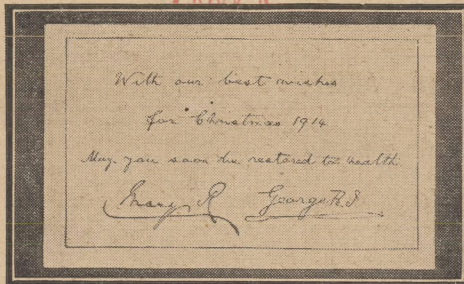 With our best wishes
for Christmas 1914
May you soon be restored to health
Mary R George R.I.